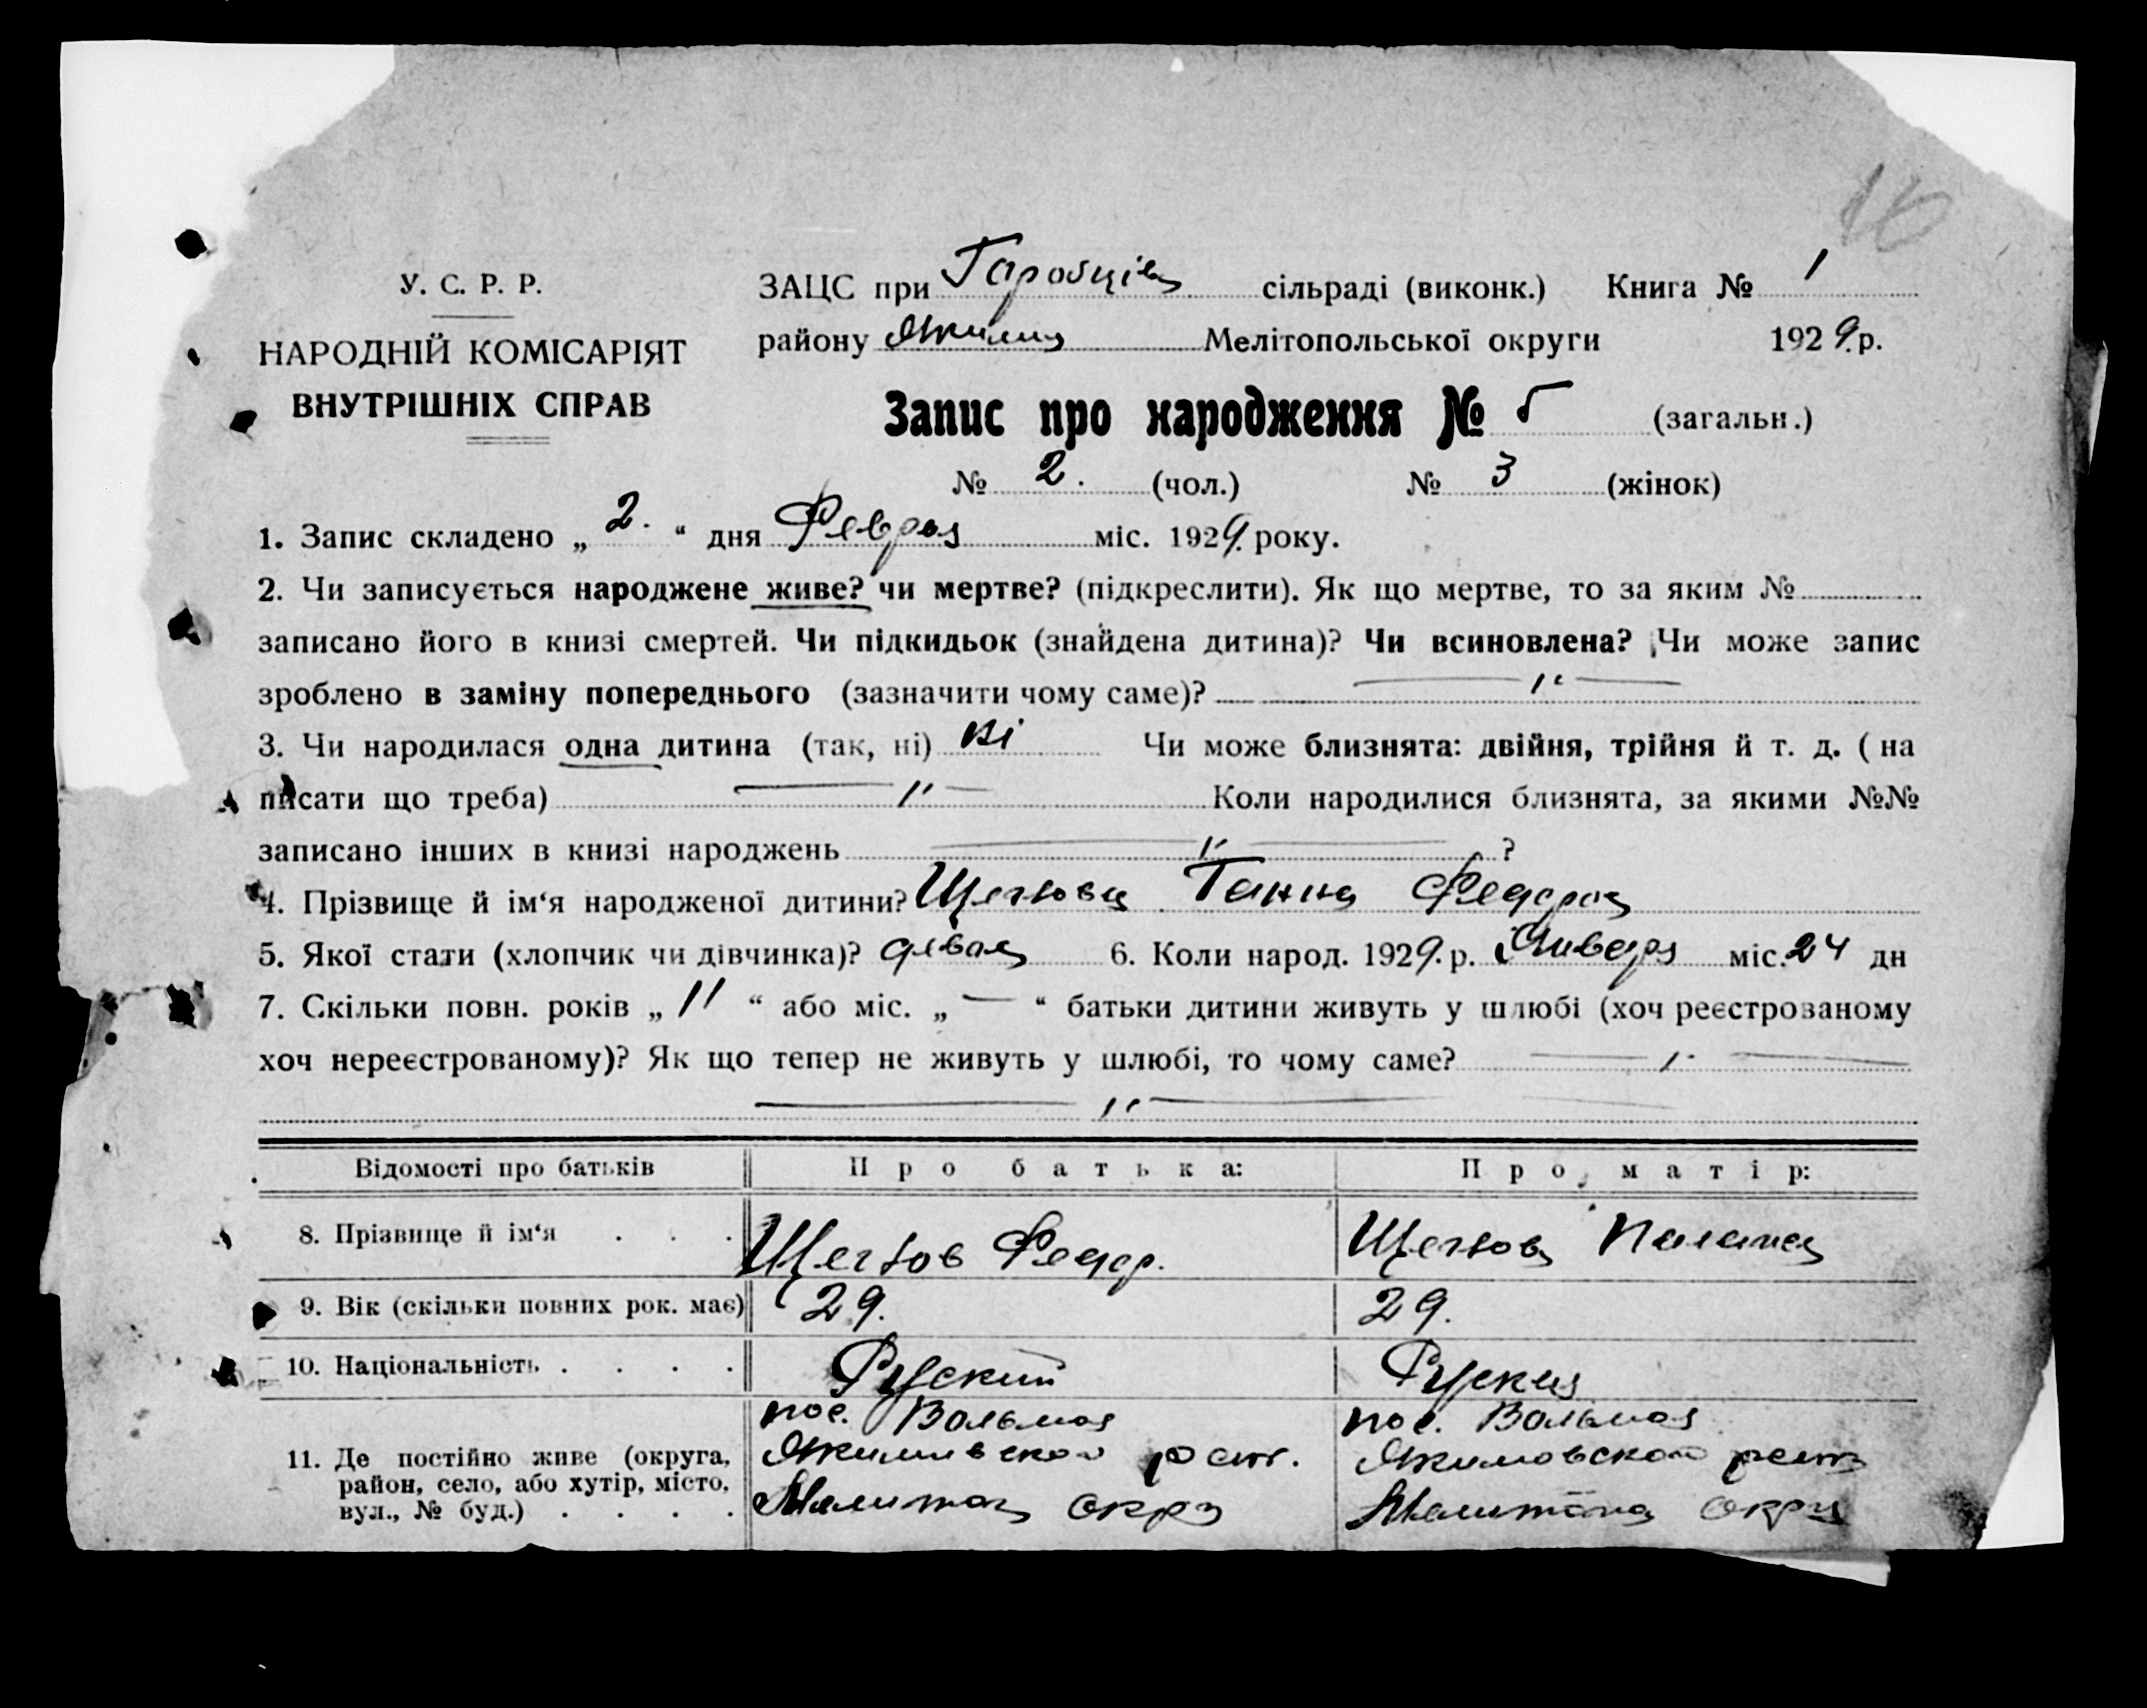 16
У. С. Р. Р.
НАРОДНІЙ КОМІСАРІЯТ
ВНУТРІШНІХ СПРАВ
ЗАЦС при сільраді (виконк.) Книга № 1
району Якимц Мелітопольської округи 1929.р.
Запис про народження № 5 (загальн.)
№ 2. (чол.) № 3 (жінок)
1. Запис складено „ 2. “ дня Февраля міс. 1929. року.
2. Чи записується народжене живе? чи мертве? (підкреслити). Як що мертве, то за яким №
записано його в книзі смертей. Чи підкидьок (знайдена дитина)? Чи всиновлена? Чи може запис
зроблено в заміну попереднього (зазначити чому саме)? — " —
3. Чи народилася одна дитина (так, ні) ні Чи може близнята: двійня, трійня й т. д. ( на
писати що треба) — " — Коли народилися близнята, за якими №№
записано інших в книзі народжень — " — ?
4. Прізвище й ім‘я народженої дитини? Щеглова Ганна Федоров
5. Якої стати (хлопчик чи дівчинка)? 6. Коли народ. 1929. р. Января міс. 24 дн
7. Скільки повн. років „ 11 “ або міс. „ — “ батьки дитини живуть у шлюбі (хоч реєстрованому
хоч нереєстрованому)? Як що тепер не живуть у шлюбі, то чому саме? — " —
— " —
Відомості про батьків Про батька: Про матір:
8. Прізвище й ім‘я . . . Щеглов Федор. Щеглова Палагея
9. Вік (скільки повних рок. має) 29. 29.
10. Національність . . . . Руский Руская
11. Де постійно живе (округа, район, село, або хутір, місто, вул., № буд.) . . . .
пос. Вольная
Якимовской
Мелитоп округ
пос. Вольная
Якимовской
Мелитопа округ